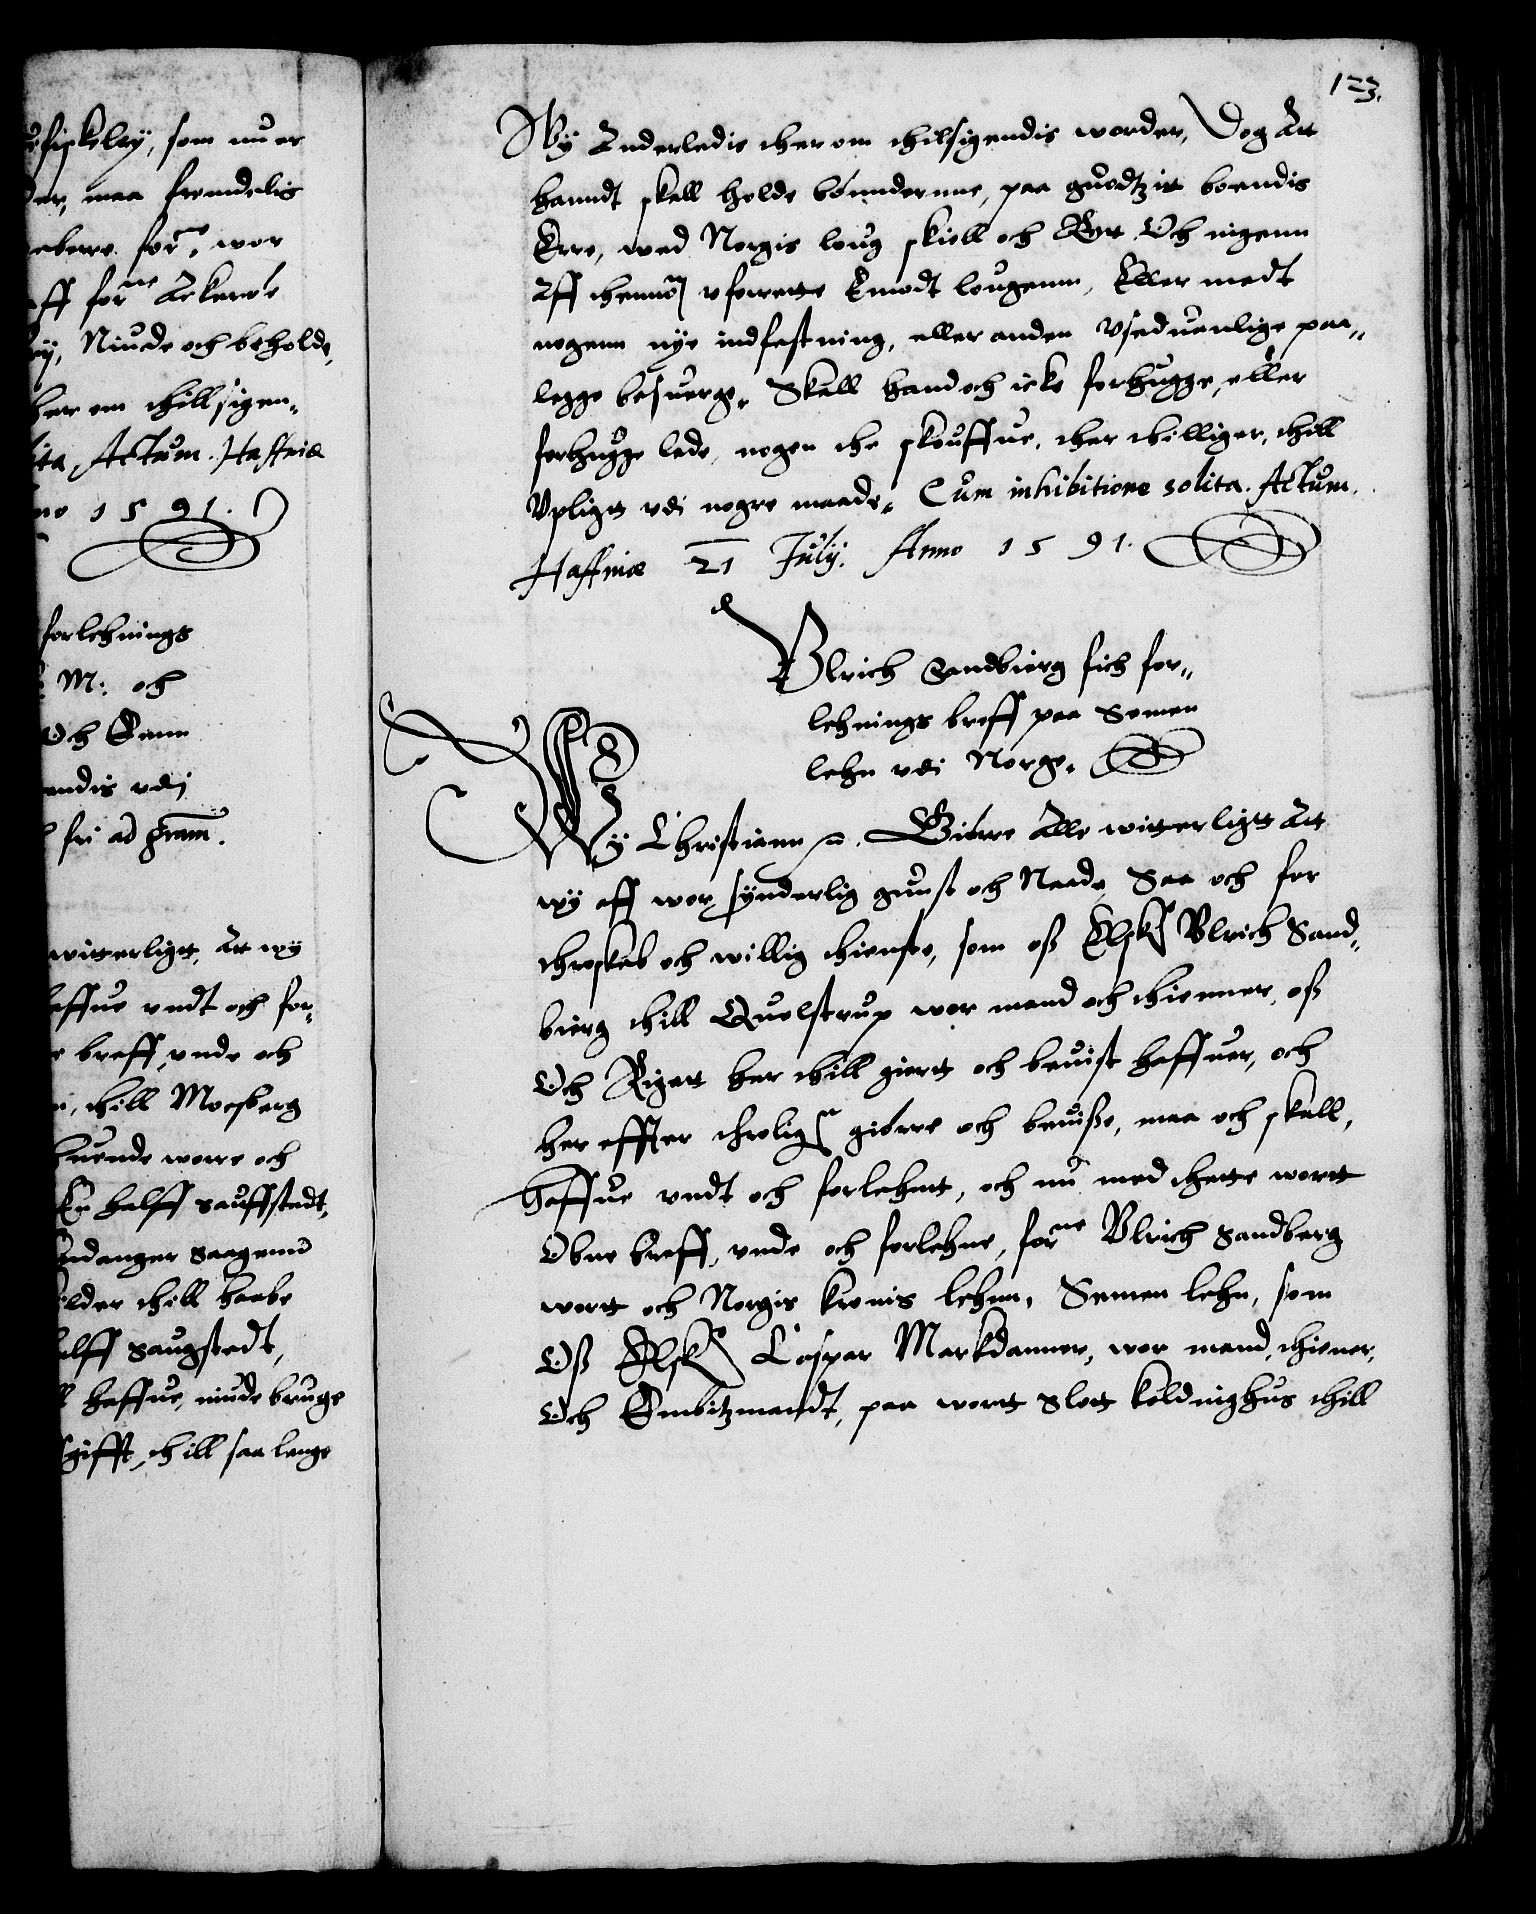 fiskerij, som nu er
er, maa fremdelis
for:ne wor
aff for:ne Akerøe
Niude och beholde,
her om thillsigen-
ita, Actum. Haffniæ
no 1591.
forlehnings
M: och
Och Cron
endis udj
fri ad gram.
witterligt, At wy
haffue undt och for-
breff, unde och
thill Moesberg
werre och
En halff Sauffstedt,
Saugenn
thill
halff Saugstedt,
haffue, niude bruge
gifft, thill saa lenge
123.
Wy Anderledis ther om thilsigendis worder, Dog At
hanndt skall holde bønnderne, paa guodtzit boendis
Erre, wed Norgis loug skiell och Rett Och ingenn
Aff thennom uforrette Emodt lougenn, Eller medt
nogenn nye indfestning, eller anden Useduanlige paa-
legge besuerge. Skall hand och icke forhugge, eller
forhugge lade, nogen the skouffue, ther thilliger, thill
Upligt udi nogre maade. Cum inhibitione solita. Actum.
Haffniæ 21 July. Anno 1591.
Ulrich Sandbierg fich for-
lehnings breff paa Semen
lehn udi Norge.
Wy Christiann etc. Giøre Alle witterligt At
wy aff wor synderlig gunst och Naade, Saa och for
throskab och willig thieniste, som oss Elske Ulrich Sand-
bierg thill Quelstrup wor mand och thienner, oss
Och Riget her thill giortt och beuist haffuer, och
her effter throligen giøre och beuise, maa och skall,
haffue undt och forlehnt, och nu med thette wortt
Obne breff, unde och forlehne, for:ne Ulrich Sandberg
wortt och Norgis kronis lehnn, Semen lehn, som
Oss Elske Casper Markdanner, wor mand, thiener,
Och Embitzmandt, paa wortt Slott koldinghus thill